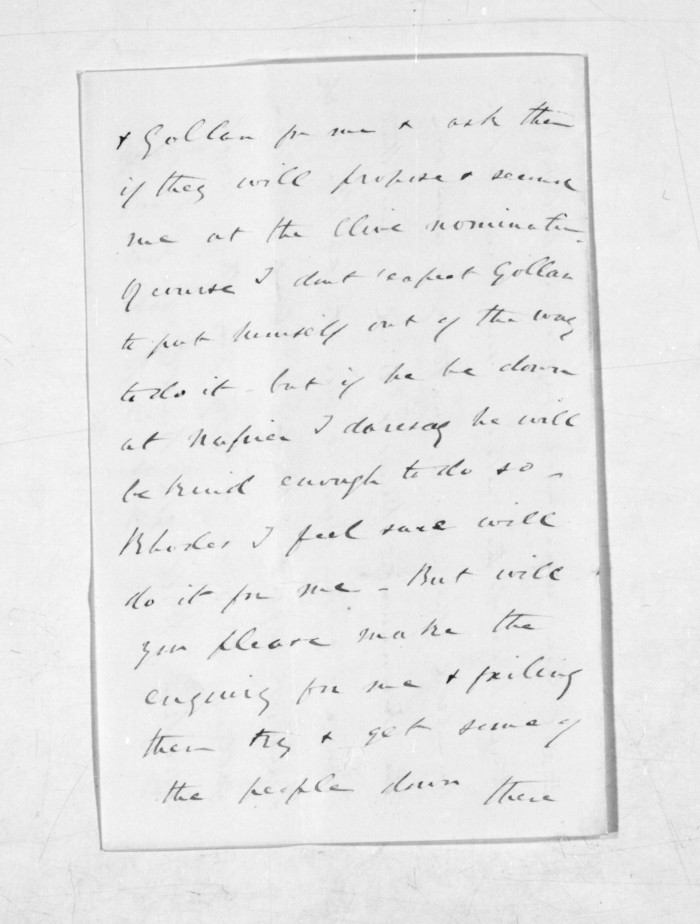 & Gollan for me & ask them
if they will propose & second
me at the Clive nomination.
Of course I dont expect Gollan
to put himself out of the way
to do it - but if he be down
at Napier I daresay he will
be kind enough to do so -
Rhodes I feel sure will
do it for me - But will
you please make the
enquiry for me & failing
them try & get some of
the people down there